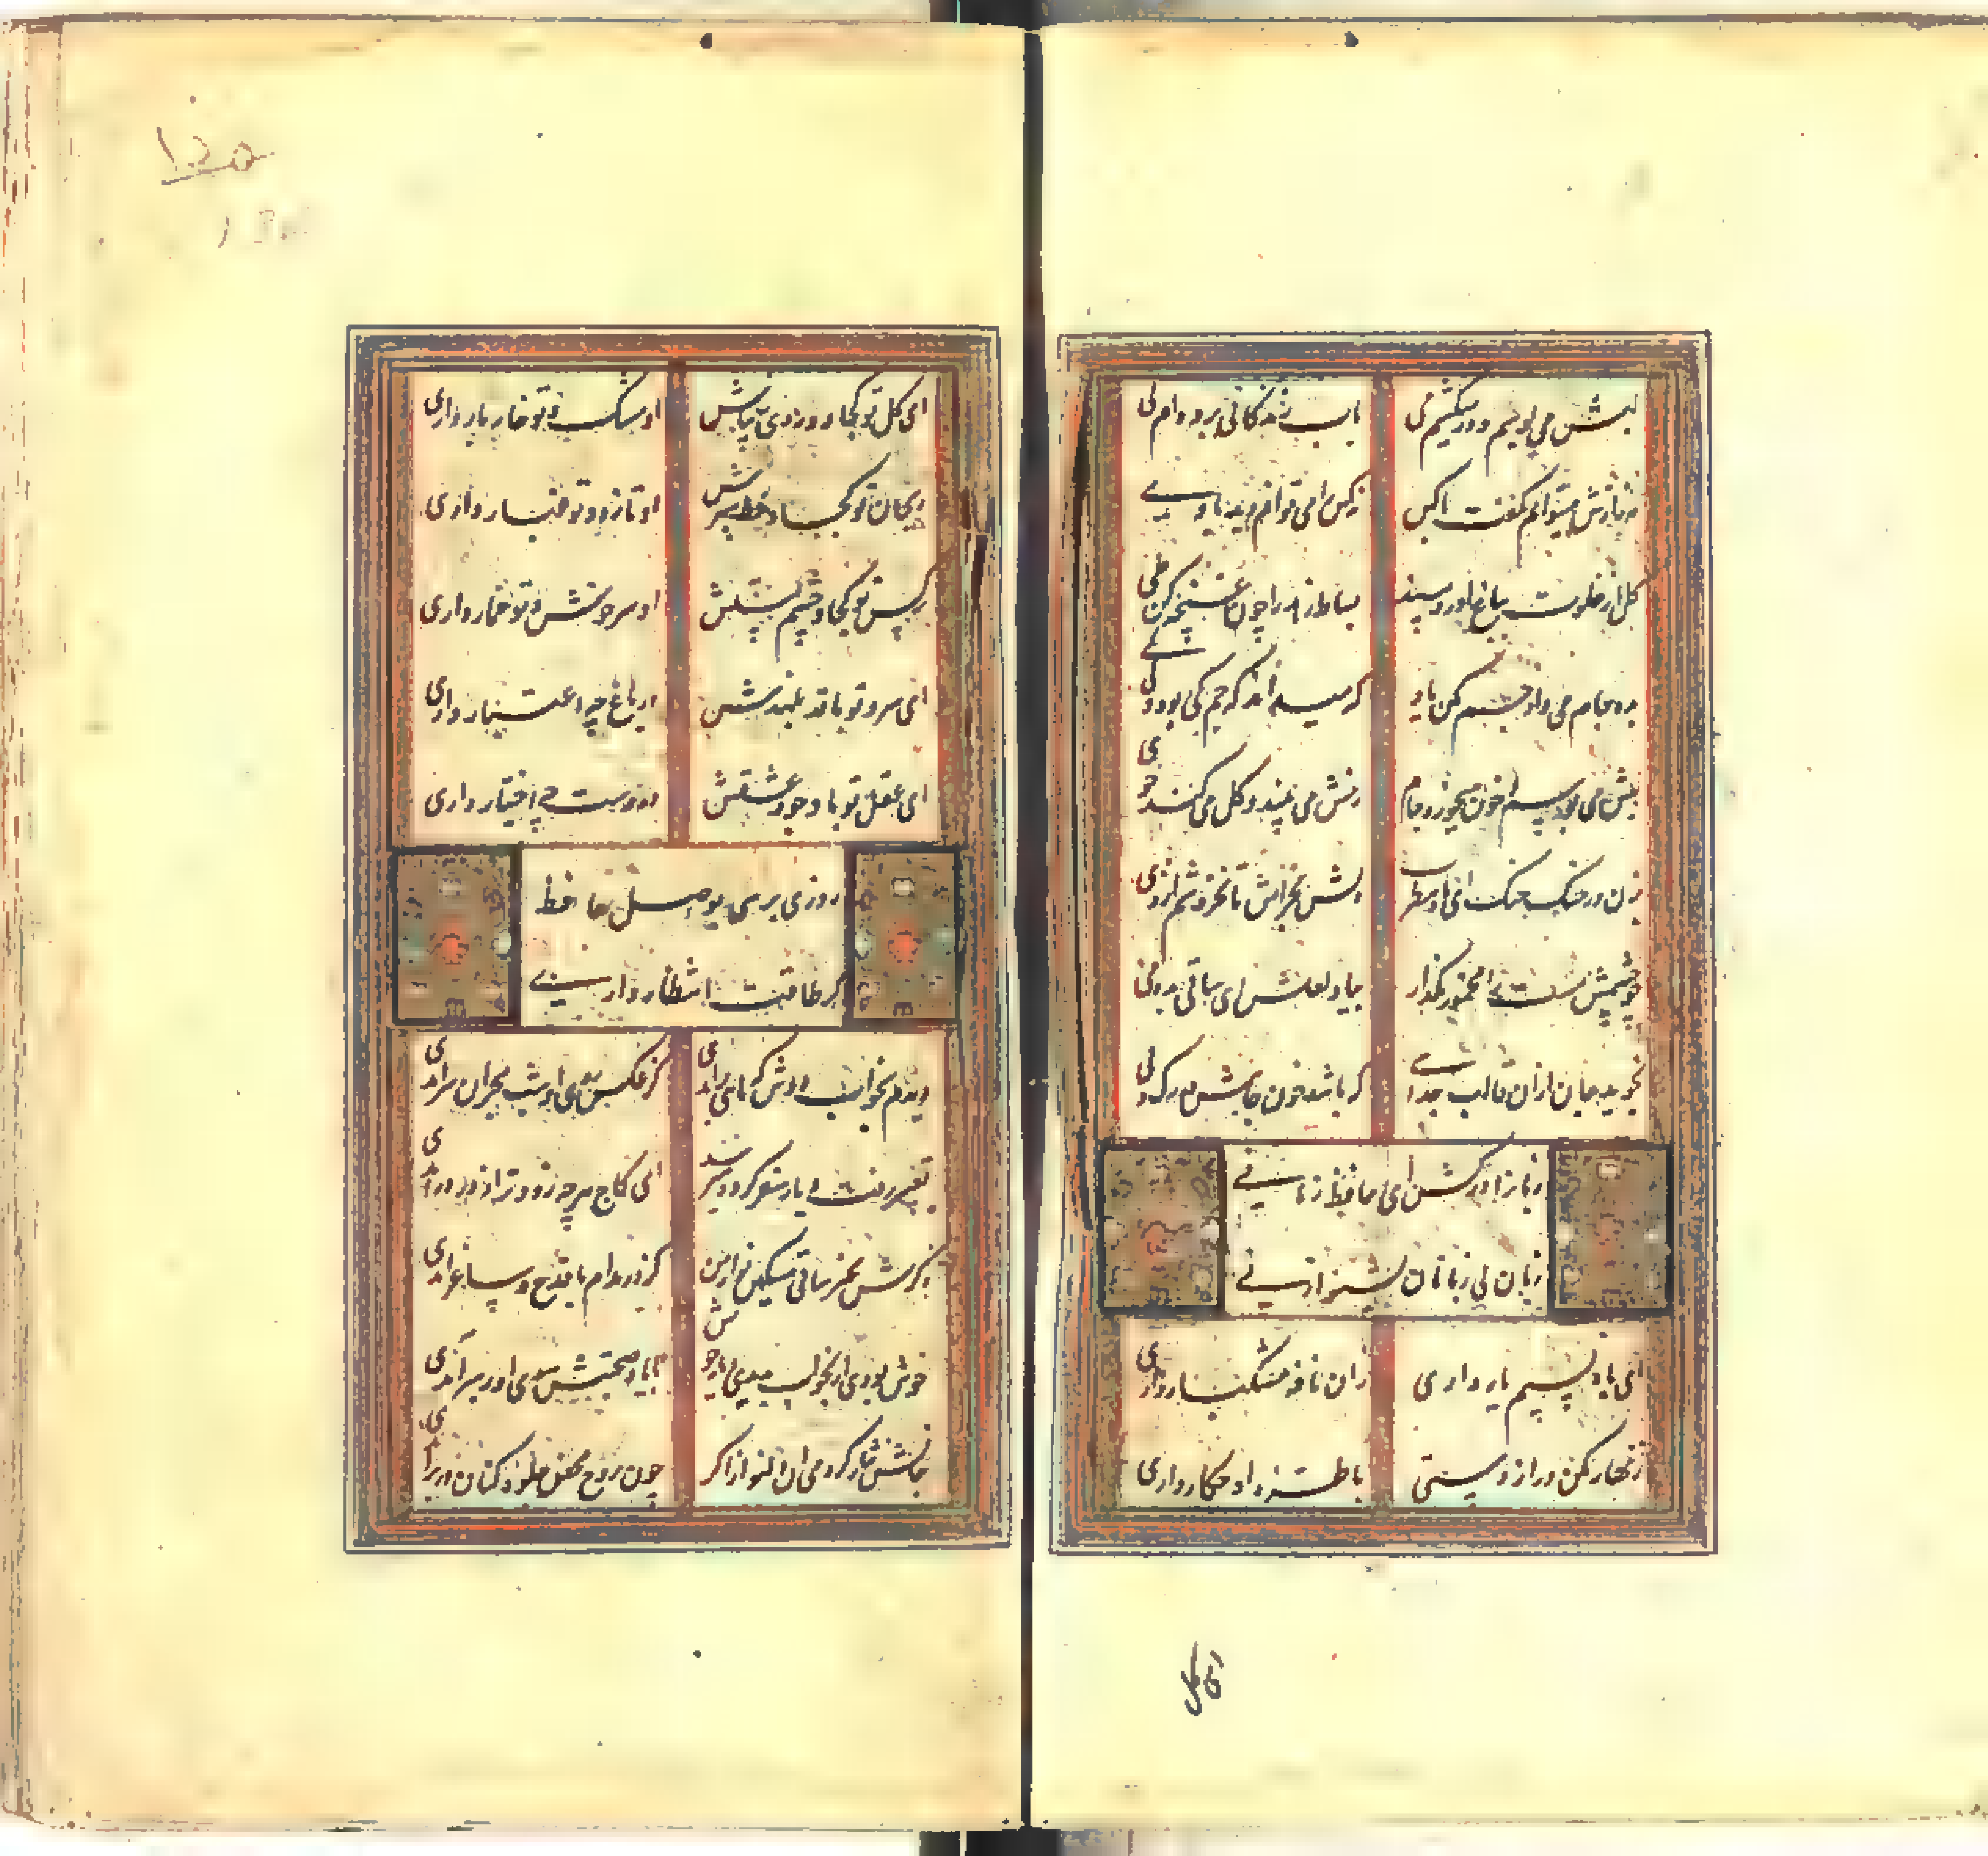 لبش می بوسم و در میکشم می
بآب زندگانی برده ام پی
نه رازش میتوانم گفت با کس
نه کس را می توانم دید با وی
گل از خلوت بباغ آورد مسند
بساط زهد را چون غنچه کن طی
بده جام می و از جم مکن یاد
که میداند که جم کی بود و کی کی
لبش می بوسد و خون میخورد جام
رخش می بیند و گل می کند خوی
بزن در چنگ چنگ ای ماه مطرب
رگش بخراش تا بخروشم از وی
چو چشمش مست را مخمور مگذار
بیاد لعلش ای ساقی بده می
نجوید جان از آن قالب جدایی
که باشد خون جامش در رگ و پی
زبانرا درکش ای حافظ زمانی
زبان بی زبانان بشنو از نی
ای باد نسیم یار داری
زان نافه مشکبار داری
زنهار مکن دراز دستی
با طره او چکار داری
ای گل
ای گل تو کجا و روی زیباش
او مشک و تو خار بار داری
ریحان تو کجا و خط سبزش
او تازه و تو غبار داری
نرگس تو کجا و چشم مستش
او سرخوش و تو خمار داری
ای سرو تو با قد بلندش
در باغ چه اعتبار داری
ای عقل تو با وجود عشقش
در دست چه اختیار داری
روزی برسی بوصل حافظ
گر طاقت انتظار داری
دیدم بخواب دوش که ماهی برآمدی
کز عکس روی او شب هجران سرآمدی
تعبیر رفت و یار سفر کرده میرسد
ای کاج هرچه زودتر از در درآمدی
ذکرش بخیر ساقی مسکین نواز من
کز در مدام با قدح و ساغر آمدی
خوش بودی ار بخواب بدیدی دیار خویش
تا یاد صحبتش سوی او رهبر آمدی
جانش نثار کردمی آن دلنواز اگر
چون روح محض جلوه کنان در برآمدی